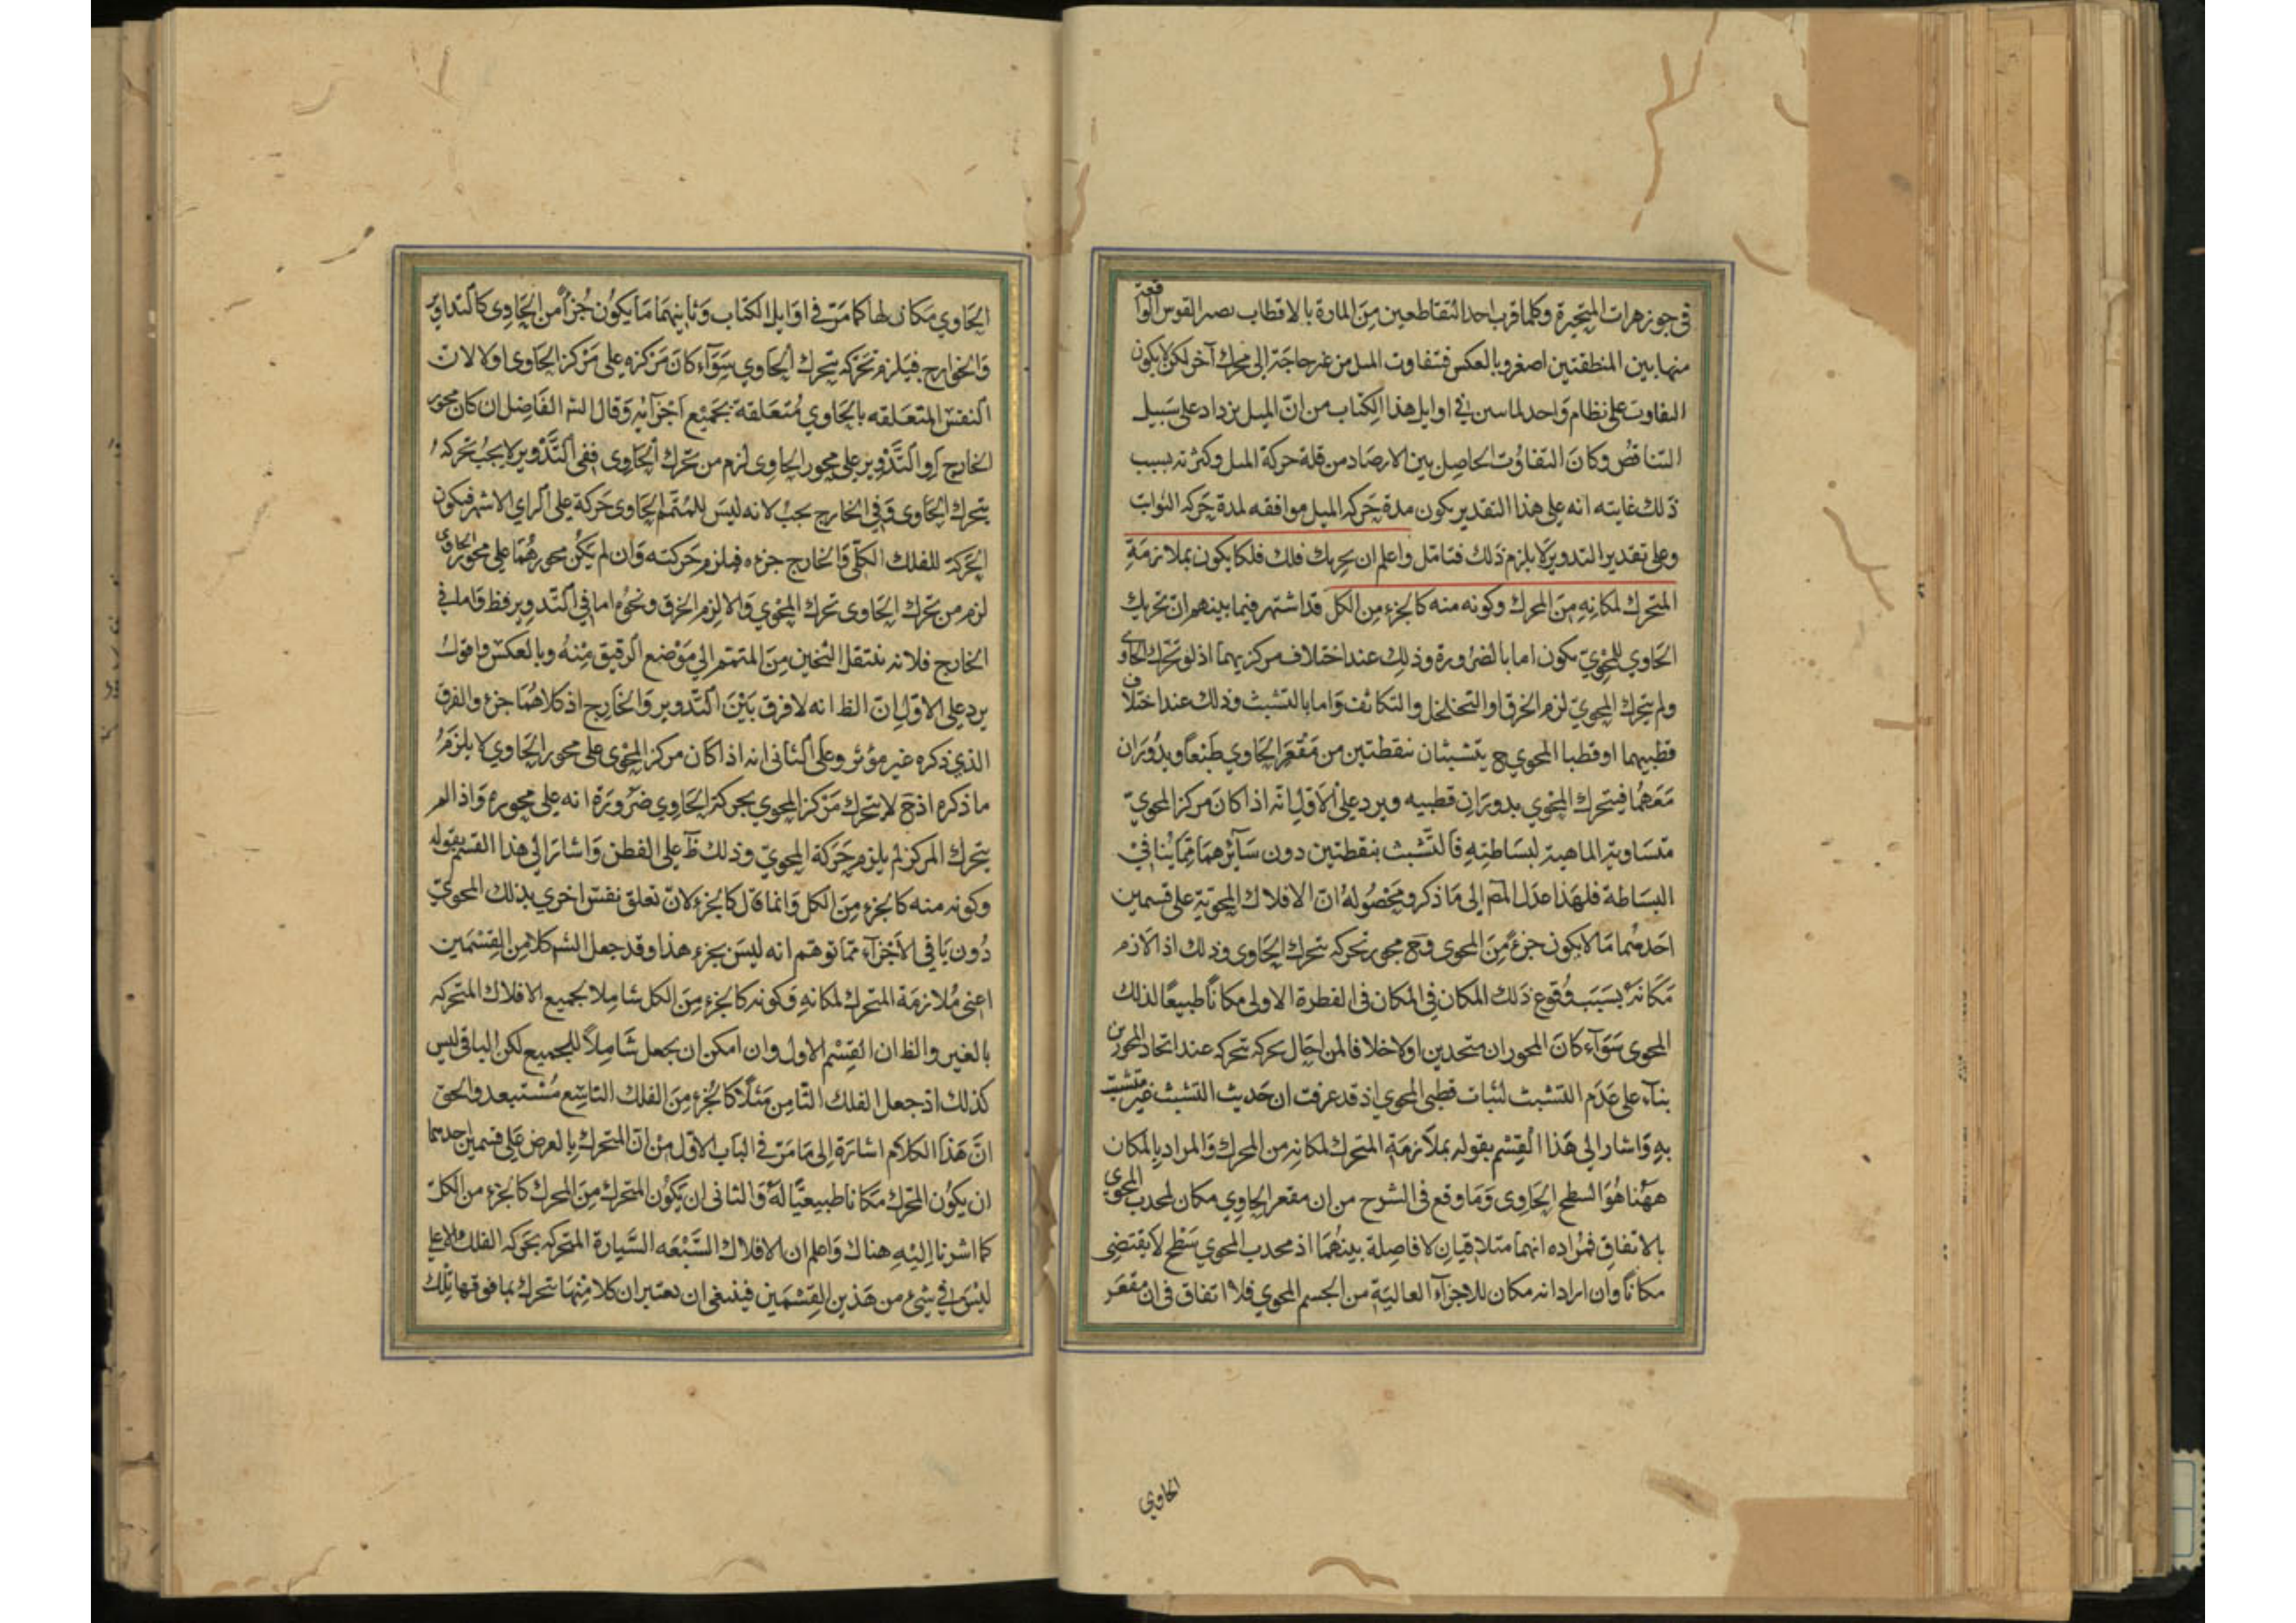 في جوزهرات المتحيرة وكلما قرب احد المتقاطعين من المارة بالاقطاب يصير القوس الواقعة
منها بين المنطقتين اصغر وبالعكس فتفاوت الميل من غير حاجة الى محرك آخر لكن لا يكون
التفاوت على نظام واحد لما سبق في اوايل هذا الكتاب من ان الميل يزداد على سبيل
التناقض وكان التفاوت الحاصل بين الارصاد من قلة حركة الميل وكثرته بسبب
ذلك غايته انه على هذا التقدير يكون مدة حركه الميل موافقه لمدة حركه الثوابت
وعلى تقدير التدوير لا يلزم ذلك فتامل واعلم ان تحريك فلك فلكا يكون بملازمة
المتحرك لمكانه من المحرك وكونه منه كالجزء من الكل قد اشتهر فيما بينهم ان تحريك
الحاوي للمحوي يكون اما بالضرورة وذلك عند اختلاف مركزيهما اذ لو تحرك الحاوي
ولم يتحرك المحوي لزم الخرق او التخلخل والتكاثف واما بالتشبث وذلك عند اختلاف
قطبيهما او قطبا المحوي ح يتشبثان بنقطتين من مقعر الحاوي طبعا ويدوران
معهما فيتحرك المحوي بدوران قطبيه ويرد على الاول انه اذا كان مركز المحوي
متساوية الماهية لبساطته فالتشبث بنقطتين دون سائرهما مما ينافي
البساطة فلهذا عدل المص الى ما ذكر ومحصوله ان الافلاك المحوية على قسمين
احدهما ما لا يكون جزء من المحوي وح يجوز تحركه بتحرك الحاوي وذلك اذا لازم
مكانه بسبب وقوع ذلك المكان في المكان في الفطرة الاولى مكانا طبيعيا لذلك
المحوي سواء كان المحوران متحدين اولا خلافا لمن احال تحركه بتحركه عند اتحاد المحورين
بناء على عدم التشبث لثبات قطبي المحوي اذ قد عرفت ان حديث التشبث غير متشبث
به واشار الى هذا القسم بقوله بملازمة المتحرك لمكانه من المحرك والمراد بالمكان
ههنا هو السطح الحاوي وما وقع في الشرح من ان مقعر الحاوي مكان لمحدب المحوي
بالاتفاق فمراده انهما متلاقيان لا فاصلة بينهما اذ محدب المحوي سطح لا يقتضي
مكانا وان اراد انه مكان للاجزاء العالية من الجسم المحوي فلا اتفاق في ان مقعر
الحاوي
الحاوي مكان لها كما مر في اوايل الكتاب وثانيهما ما يكون جزأ من الحاوي كالتداوير
والخوارج فيلزم تحركه بتحرك الحاوي سواء كان مركزه على مركز الحاوي اولا لان
النفس المتعلقه بالحاوي متعلقة بجميع اجزآئه وقال الشه الفاضل ان كان محور
الخارج او التدوير على محور الحاوي لزم من تحرك الحاوي ففي التدوير لا يجب تحركه
بتحرك الحاوي وفي الخارج يجب لانه ليس للمتمم الحاوي حركة على الراي الاشهر فيكون
الحركة للفلك الكلي والخارج جزءه فيلزم حركته وان لم يكن محورهما على محور الحاوي
لزم من تحرك الحاوي تحرك المحوي والا لزم الخرق ونحوه اما في التدوير فظ واما في
الخارج فلانه ينتقل الثخين من المتمم الى موضع الرقيق منه وبالعكس واقول
يرد على الاول ان الظ انه لا فرق بين التدوير والخارج اذ كلاهما جزء والفرق
الذي ذكره غير مؤثر وعلى الثاني انه اذا كان مركز المحوي على محور الحاوي لا يلزم
ما ذكره اذ ح لا يتحرك مركز المحوي بحركة الحاوي ضرورة انه على محوره واذا لم
يتحرك المركز لم يلزم حركة المحوي وذلك ظ على الفطن واشار الى هذا القسم بقوله
وكونه منه كالجزء من الكل وانما قال كالجزء لان تعلق نفس اخري بذلك المحوي
دون باقي الاجزآء مما توهم انه ليس بجزء هذا وقد جعل الشه كلا من القسمين
اعني ملازمة المتحرك لمكانه وكونه كالجزء من الكل شاملا بجميع الافلاك المتحركه
بالغير والظ ان القسم الاول وان امكن ان يجعل شاملا للجميع لكن الباقي ليس
كذلك اذ جعل الفلك الثامن مثلا كالجزء من الفلك التاسع مستبعد والحق
ان هذا الكلام اشارة الى ما مر في الباب الاول من ان المتحرك بالعرض على قسمين احدهما
ان يكون المحرك مكانا طبيعيا له والثاني ان يكون المتحرك من المحرك كالجزء من الكل
كما اشرنا اليه هناك واعلم ان الافلاك السبعه السيارة المتحركه بحركه الفلك الاعلى
ليس في شيء من هذين القسمين فينبغي ان يعتبر ان كلا منها يتحرك بما فوقها تلك